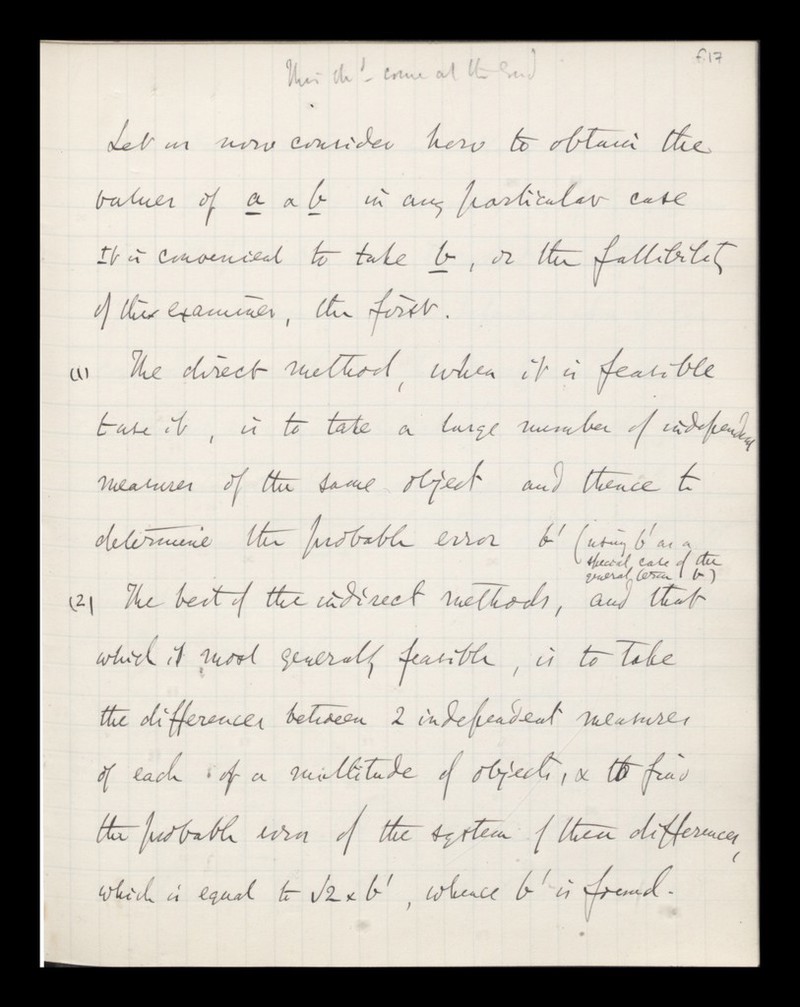 f.17
This shd come at the End
Let us now consider how to obtain the
values of a & b in any particular case
It is convenient to take b, or the fallibility
of the examiner, the first.
(1) The direct method, when it is feasible
to use it, is to take a large number of independent
measures of the same object and thence to
determine the probable error b' (using b' as a
special case of the
general term b)
(2) The best of the indirect methods, and that
which is most generally feasible, is to take
the differences between 2 independent measures
of each of a multitude of objects, & to find
the probable error of the system of these differences,
which is equal to √2 × b', whence b' is found.